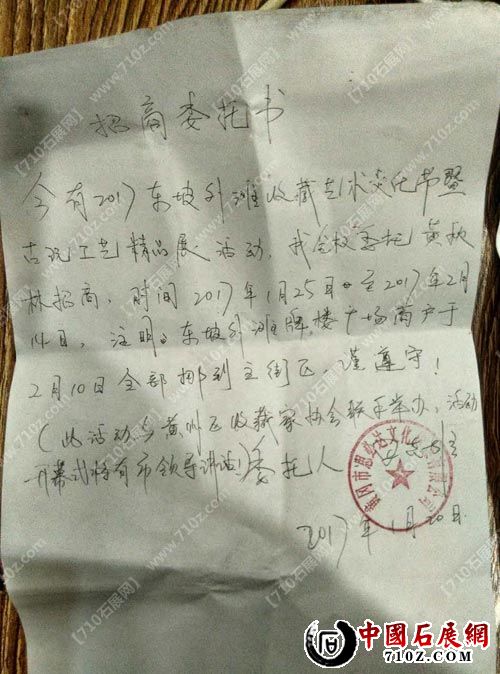 招商委托书
今有2017东坡外滩收藏艺术文化节暨
古玩工艺精品展活动，我全权委托黄秋
林招商，时间2017年1月25日至2017年2月
14日，注明：东坡外滩牌楼广场商户于
2月10日全部挪到主街区，谨遵守！
（此活动与黄州区收藏家协会联手举办，活动
开幕式将有市领导讲话）委托人
黄冈市思 文化 有限公司
2017年1月20日
中國石展網
710z.COM
【710石展网】
www.710z.com